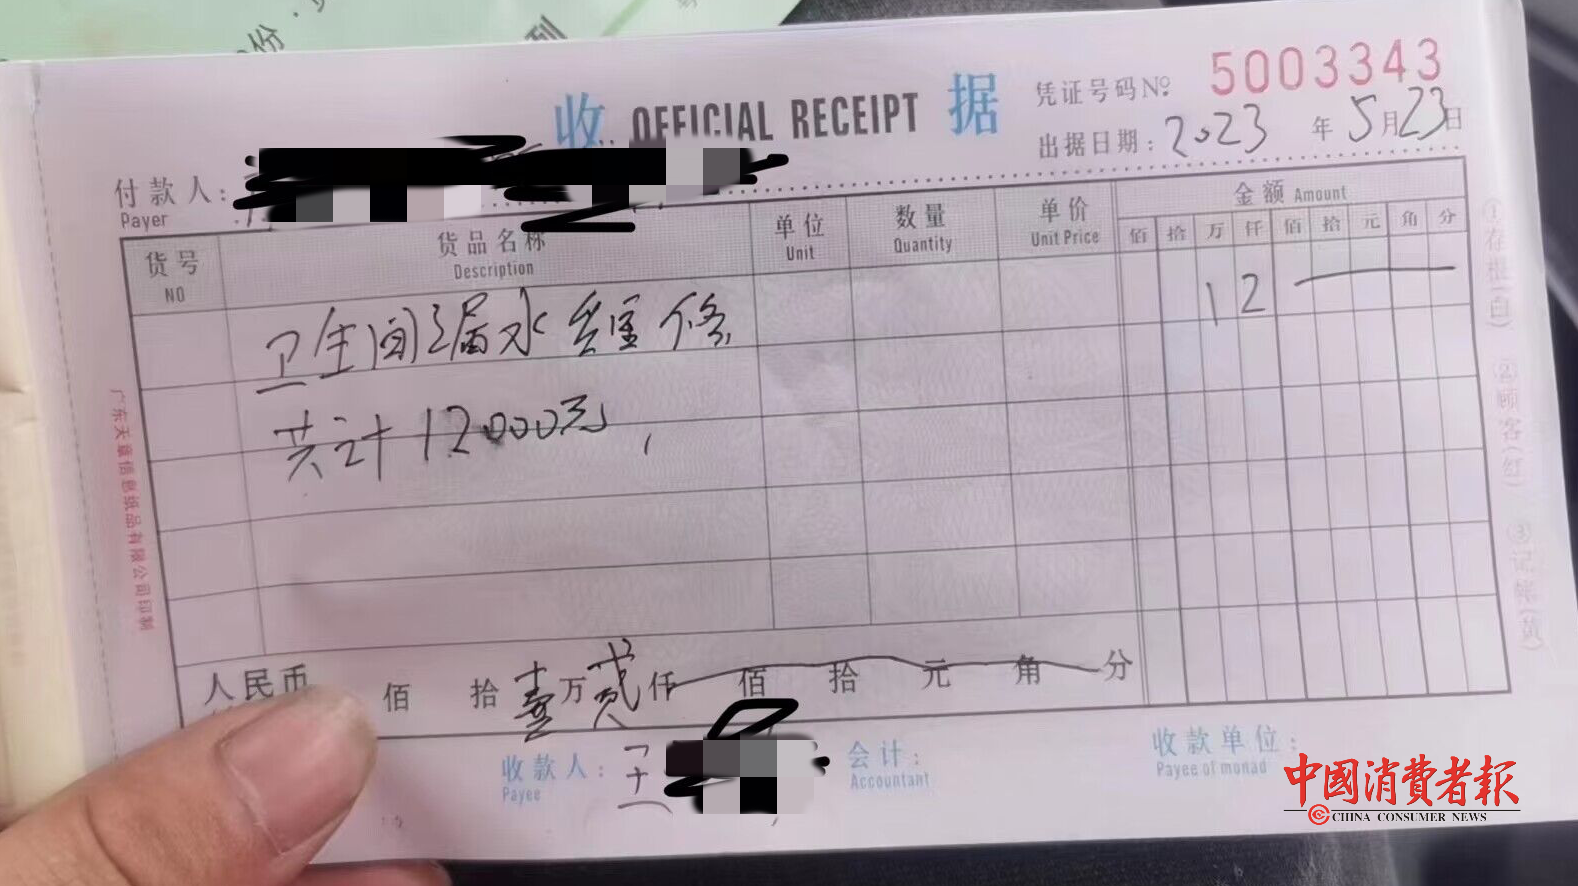 份·
列
收 OFFICIAL RECEIPT 据
凭证号码№ 5003343
出据日期：2023 年 5月23日
付款人：
Payer
货号
NO
货品名称
Description
单位
Unit
数量
Quantity
单价
Unit Price
金额 Amount
佰 拾 万 仟 佰 拾 元 角 分
卫生间漏水维修 12
共计12000元
人民币 佰 拾 壹万贰仟 佰 拾 元 角 分
收款人：
Payee
会计：
Accountant
收款单位：
Payee of monad
广东天章信息纸品有限公司印制
①存根(白) ②顾客(红) ③记帐(黄)
中國消費者報
CHINA CONSUMER NEWS